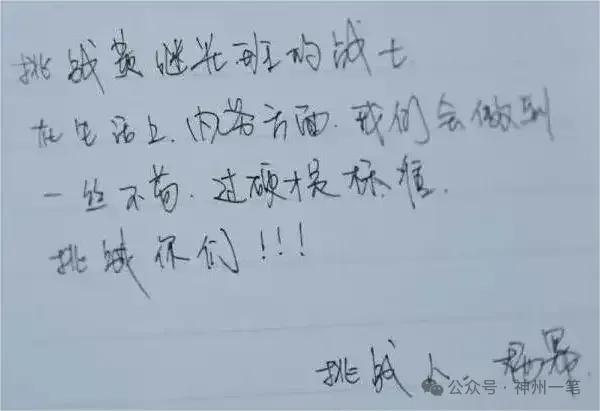 挑战黄继光班的战士
在生活上.内务方面.我们会做到
一丝不苟.过硬才是标准.
挑战你们!!!
挑战人
公众号·神州一笔